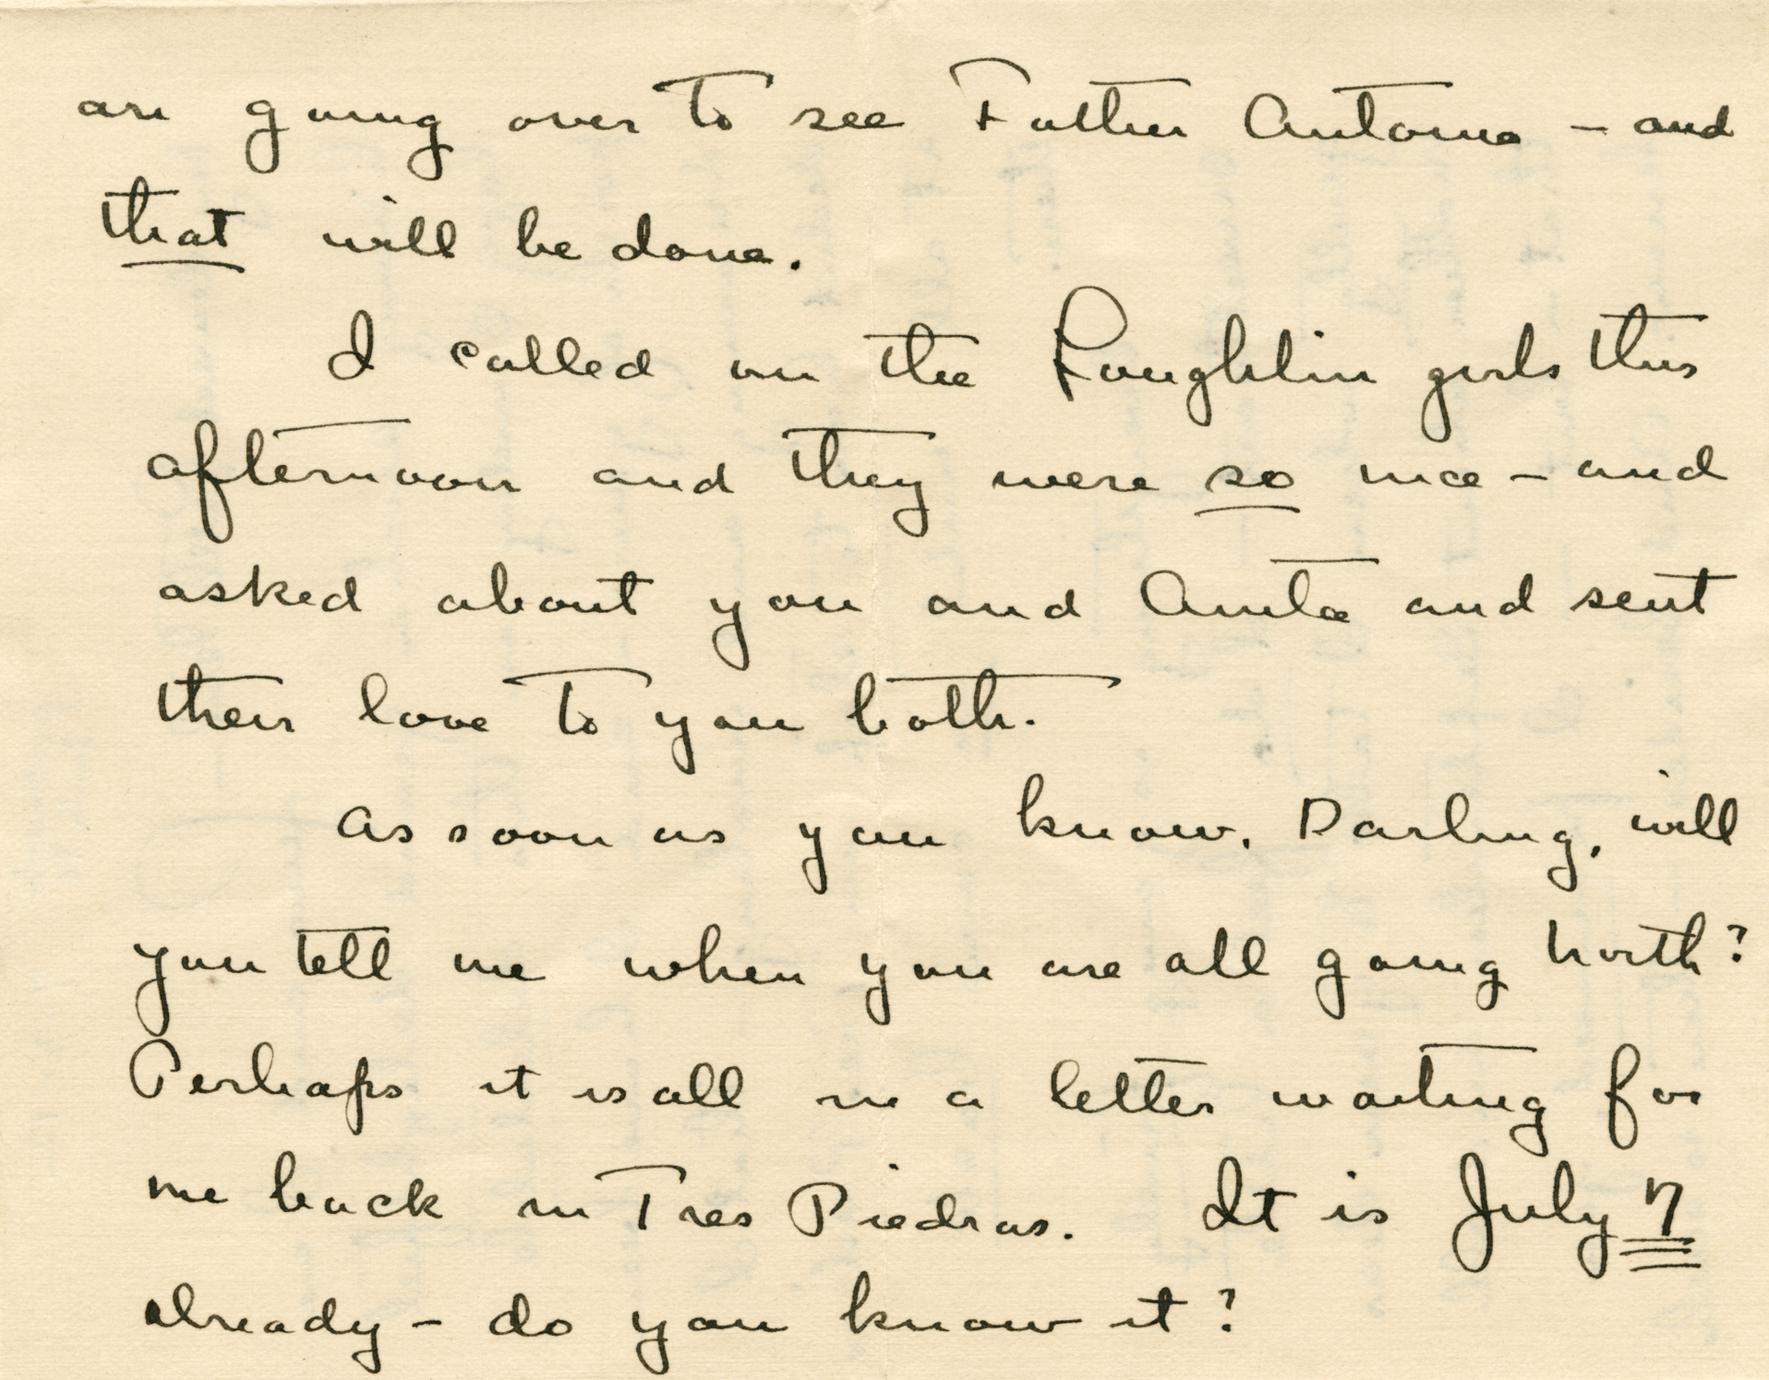 are going over to see Father Antoine - and
that will be done.
I called on the Loughlin girls this
afternoon and they were so nice - and
asked about you and Anita and sent
their love to you both.
As soon as you know, Darling, will
you tell me when you are all going north?
Perhaps it is all in a letter waiting for
me back in Tres Piedras. It is July 7
already - do you know it?